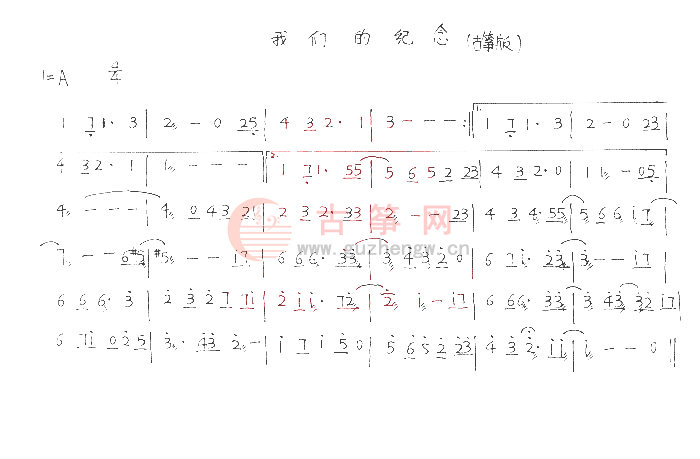 我们的纪念(古筝版)
1=A 4/4
1 7 1· 3 | 2 - 0 25 | 4 3 2· 1 | 3 - - - :‖ 1. 1 7 1· 3 | 2 - 0 23 |
4 32· 1 | 1 - - - | 2. 1 7 1· 55 | 5 6 5 2 23 | 4 3 2· 0 | 1 1 - 05 |
4 - - - | 4 0 4 3 21 | 2 3 2· 33 | 2 - - 23 | 4 3 4· 55 | 5 6 6 i 7 |
7 - - 6 #5 | #5 - - i7 | 6 6 6· 33 | 3 4 3 2 0 | 6 7 i· 23 | 3 - - i7 |
6 6 6· 3 | 2 3 2 7 7i | 2 i i· 72 | 2 i - i7 | 6 66· 33 | 3 43 32 i7 |
6 7i 0 2 5 | 3· 43 2 - | i 7 i 5 0 | 5 6 5 2 23 | 4 3 2· ii | i - - 0 ‖
古筝网
www.guzhengw.cn